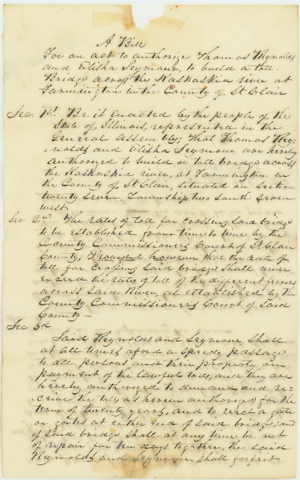 A Bill
For an act to authorize Thomas Reynolds
and Elisha Seymour to build a toll
Bridge across the Kaskaskia river at
Farmington in the County of St Clair
Sec 1st. Be it enacted by the people of the
State of Illinois, represented in the
General Assembly, That Thomas Rey-
nolds and Elisha Seymour are hereby
authorized to build a toll bridge across
the Kaskaskia river, at Farmington in
the County of St Clair, situated on section
twenty seven Township two south seven
west
Sec 2nd The rates of toll for crossing said bridge
to be established from time to time by the
County Commissioners Court of St Clair
County, Provided however that the rate of
toll for crossing said bridge shall never
exceed the rates of toll of the different ferries
across said River as established by the
County Commissioners Court of said
County
Sec 3d
Said Reynolds and Seymour shall
at all times afford a speedy passage
to all persons and their property on
payment of the lawful toll, and they are
hereby authorized to demand and re-
ceive the toll as herein authorized for the
time of twenty years, and to erect a gate
or gates at either end of said bridge and
if said bridge shall at any time be out
of repair for ten days together, the said
Reynolds and Seymour shall forfeit